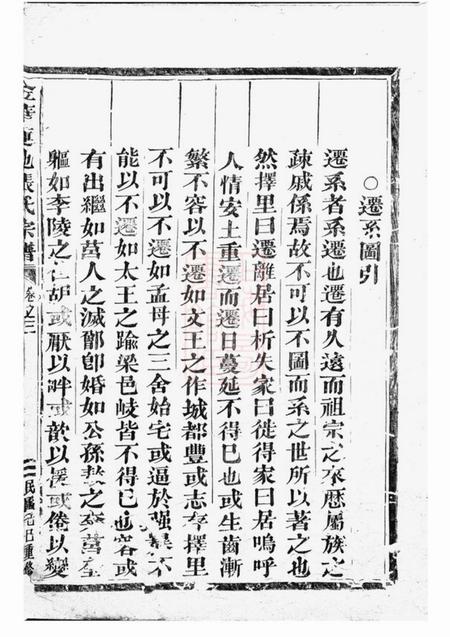 ○遷系圖引
遷系者系遷也遷有久遠而祖宗之來歷屬族之
疎戚係焉故不可以不圖而系之世所以著之也
然擇里曰遷離居曰析失家曰徙得家曰居嗚呼
人情安土重遷而遷日蔓延不得已也或生齒漸
繁不容以不遷如文王之作城都豐或志存擇里
不可以不遷如孟母之三舍始宅或逼於强暴不
能以不遷如太王之踰梁邑岐皆不得已也容或
有出繼如莒人之滅鄫卽婚如公孫敖之奔莒至
軀如李陵之仁胡或厭以畔或歆以援或倦以變
金華蓮池張氏宗譜 卷之三 民國 重修